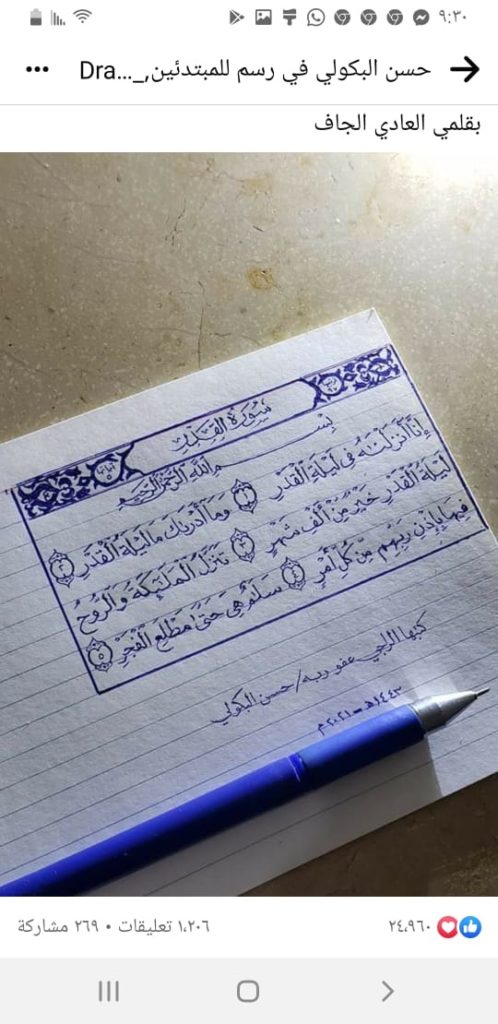 ٩:٣٠
حسن البكولي في رسم للمبتدئين,_...Dra
بقلمي العادي الجاف
سورة القدر
بسم الله الرحمن الرحيم
إنا أنزلنه في ليلة القدر ١ وما أدرىك ما ليلة القدر ٢
ليلة القدر خير من ألف شهر ٣ تنزل الملئكة والروح
فيها بإذن ربهم من كل أمر ٤ سلم هي حتى مطلع الفجر ٥
كتبها الراجي عفو ربه/حسن البكولي
١٤٤٣هـ - ٢٠٢١م
٢٤٬٩٦٠
١٬٢٠٦ تعليقات • ٢٦٩ مشاركة